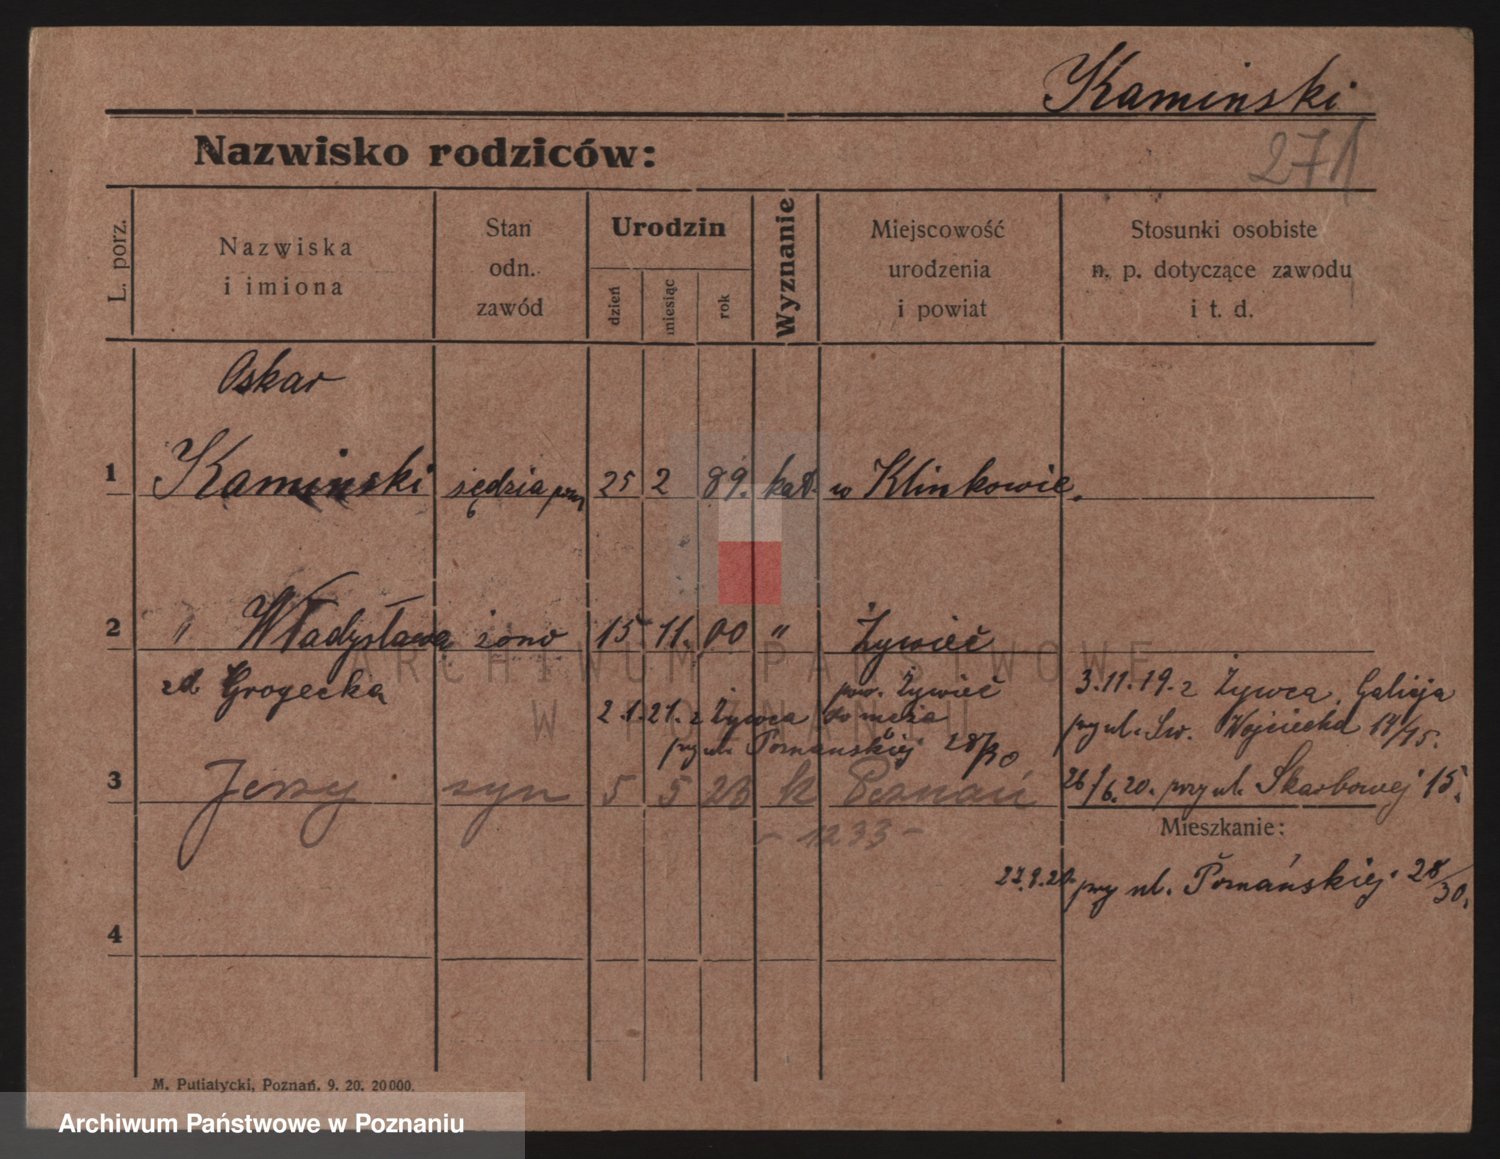 Kaminski
271
Nazwisko rodziców:
L. porz.
Nazwiska
i imiona
Stan
odn.
zawód
Urodzin
dzień
miesiąc
rok
Wyznanie
Miejscowość
urodzenia
i powiat
Stosunki osobiste
n. p. dotyczące zawodu
i t. d.
Oskar
1 Kaminski sędzia 25 2 89. kat. w Klinkowie.
2 " Władysława żona 15 11. 00 " Żywiec
zd. Grogecka
pow. Żywiec
3.11.19. z Żywca, Galicja
2.1.21. z Żywca do męża
przy ul. Św. Wojciecha 14/15.
przy ul. Poznańskiej 28/30
3 Jerzy syn 5 5 23 k Poznań
26/6.20. przy ul. Skarbowej 15.
- 1233 -
Mieszkanie:
27.9.20. przy ul. Poznańskiej 28/30.
4
M. Putiatycki, Poznań. 9. 20. 20000.
ARCHIWUM PAŃSTWOWE
W POZNANIU
Archiwum Państwowe w Poznaniu